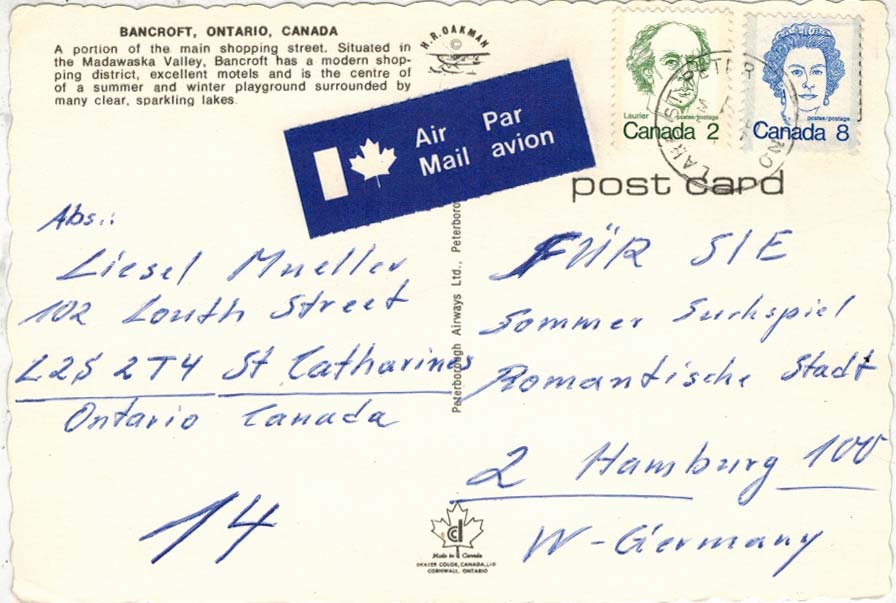 BANCROFT, ONTARIO, CANADA
A portion of the main shopping street. Situated in
the Madawaska Valley, Bancroft has a modern shop-
ping district, excellent motels and is the centre of
of a summer and winter playground surrounded by
many clear, sparkling lakes.
H. R. OAKMAN
©
Air Par
Mail avion
Laurier
postes/postage
Canada 2
postes/postage
Canada 8
PETER
post card
Abs.:
Liesel Mueller
102 Louth Street
L2S 2T4 St Catharines
Ontario Canada
14
Peterborough Airways Ltd., Peterboro
FÜR SIE
Sommer Suchspiel
Romantische Stadt
2 Hamburg 100
W-Germany
Made in Canada
DEXTER COLOR, CANADA, LTD
CORNWALL, ONTARIO